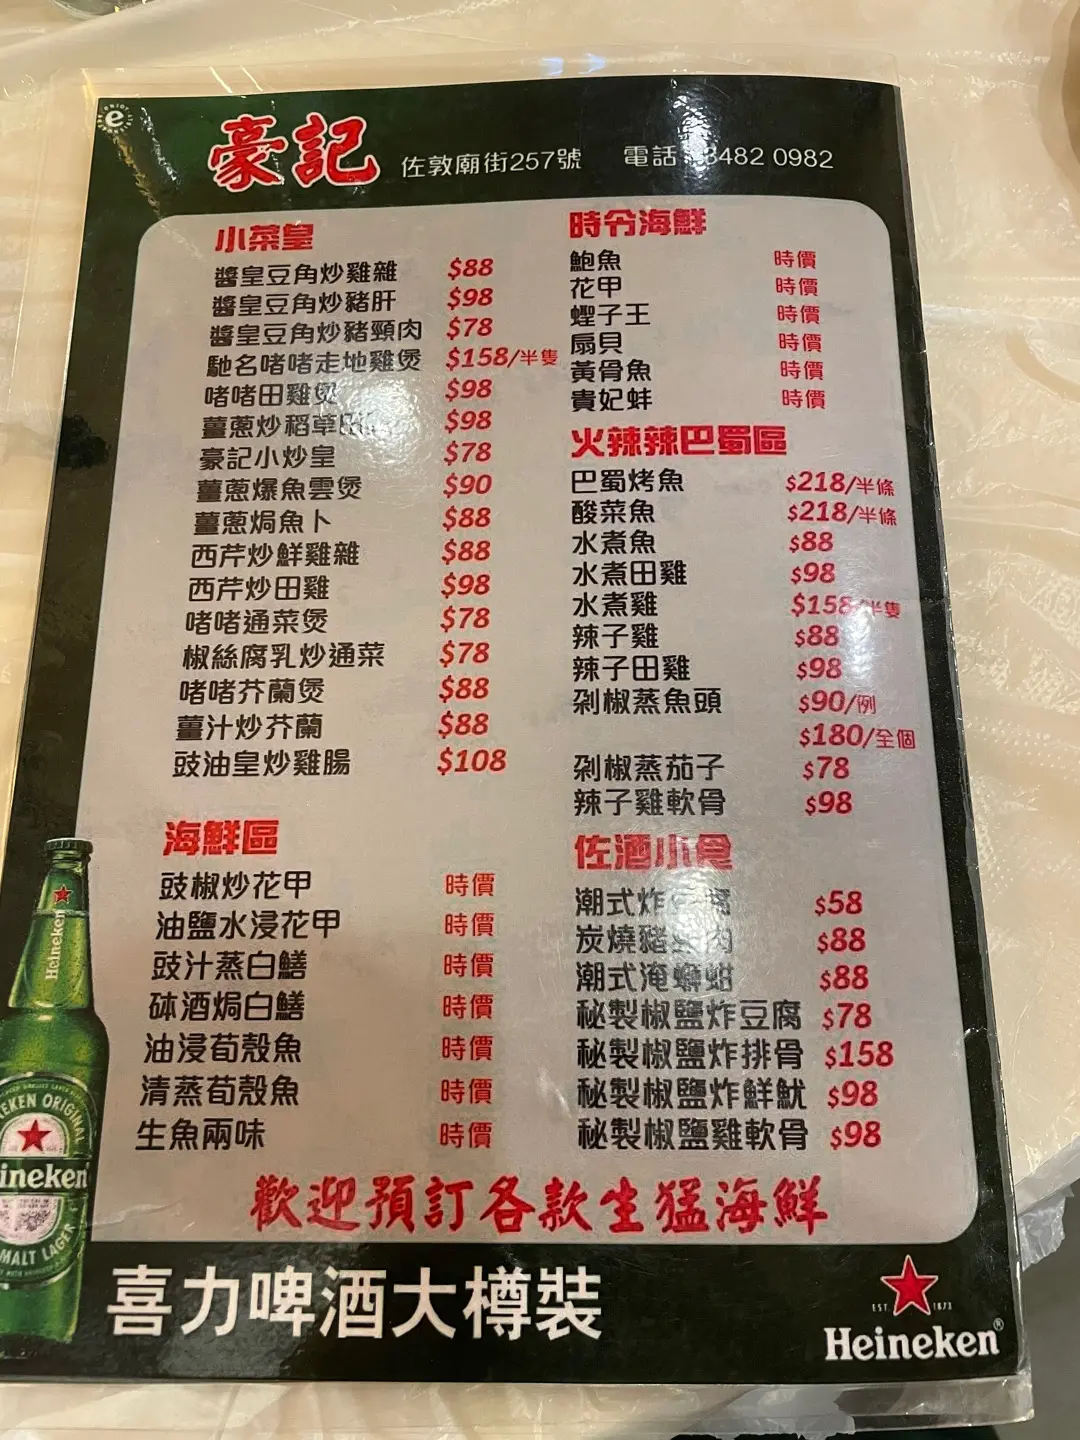 ENJOY
豪記 佐敦廟街257號 電話 3482 0982
小菜皇
醬皇豆角炒雞雜 $88
醬皇豆角炒豬肝 $98
醬皇豆角炒豬頸肉 $78
馳名啫啫走地雞煲 $158/半隻
啫啫田雞煲 $98
薑蔥炒稻草 $98
豪記小炒皇 $78
薑蔥爆魚雲煲 $90
薑蔥焗魚卜 $88
西芹炒鮮雞雜 $88
西芹炒田雞 $98
啫啫通菜煲 $78
椒絲腐乳炒通菜 $78
啫啫芥蘭煲 $88
薑汁炒芥蘭 $88
豉油皇炒雞腸 $108
海鮮區
豉椒炒花甲 時價
油鹽水浸花甲 時價
豉汁蒸白鱔 時價
砵酒焗白鱔 時價
油浸荀殼魚 時價
清蒸荀殼魚 時價
生魚兩味 時價
時令海鮮
鮑魚 時價
花甲 時價
蟶子王 時價
扇貝 時價
黃骨魚 時價
貴妃蚌 時價
火辣辣巴蜀區
巴蜀烤魚 $218/半條
酸菜魚 $218/半條
水煮魚 $88
水煮田雞 $98
水煮雞 $158/半隻
辣子雞 $88
辣子田雞 $98
剁椒蒸魚頭 $90/例
$180/全個
剁椒蒸茄子 $78
辣子雞軟骨 $98
佐酒小食
潮式炸豆腐 $58
炭燒豬頸肉 $88
潮式淹蠄蚶 $88
秘製椒鹽炸豆腐 $78
秘製椒鹽炸排骨 $158
秘製椒鹽炸鮮魷 $98
秘製椒鹽雞軟骨 $98
歡迎預訂各款生猛海鮮
喜力啤酒大樽裝
EST. 1873
Heineken®
Heineken
EKEN ORIGINAL
ineken
MALT LAGER